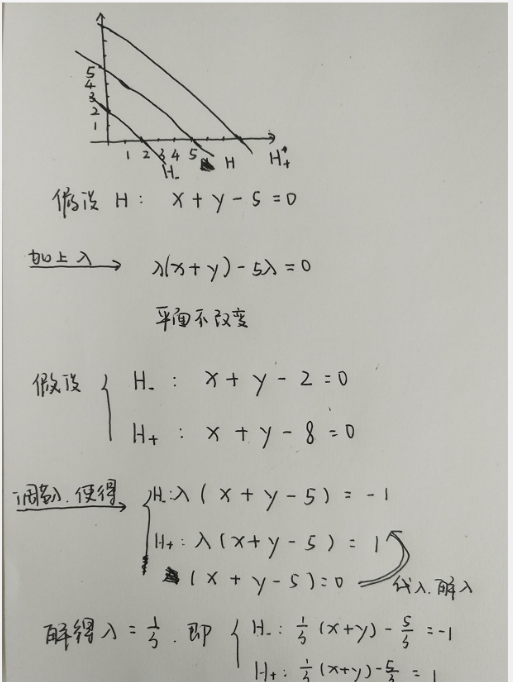 5
4
3
2
1
1 2 3 4 5
H₋ H H₊
假设 H: x + y - 5 = 0
加上 λ λ(x + y) - 5λ = 0
平面不改变
假设 { H₋ : x + y - 2 = 0
H₊ : x + y - 8 = 0
调整λ,使得 { H₋: λ ( x + y - 5 ) = -1
H₊: λ ( x + y - 5 ) = 1
( x + y - 5 ) = 0 代入,解入
解得 λ = 1/3 , 即 { H₋: 1/3 (x+y) - 5/3 = -1
H₊: 1/3 (x+y) - 5/3 = 1